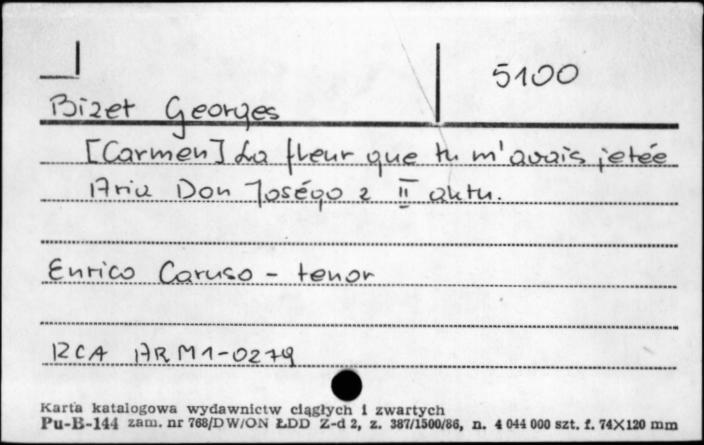 5100
Bizet Georges
[Carmen] La fleur que tu m'avais jetée
Aria Don Joségo z II aktu.
Enrico Caruso - tenor
RCA ARM1-0279
Karta katalogowa wydawnictw ciągłych i zwartych
Pu-B-144 zam. nr 768/DW/ON ŁDD Z-d 2, z. 387/1500/86, n. 4 044 000 szt. f. 74X120 mm